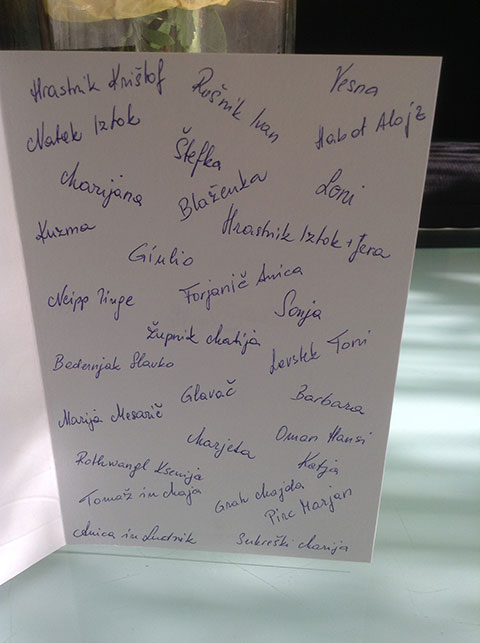 Hrastnik Krištof
Rošnik Ivan
Vesna
Natek Iztok
Štefka
Habot Alojz
Marijana
Blaženka
Loni
Kuzma
Hrastnik Iztok + Jera
Giulio
Neipp Inge
Forjanič Anica
Sonja
Župnik Matija
Levstek Toni
Bedernjak Slavko
Glavač
Barbara
Marija Mesarič
Marjeta
Oman Hansi
Rothwangl Ksenija
Katja
Tomaž in Maja
Grah Majda
Pirc Marjan
Anica in Ludvik
Marija